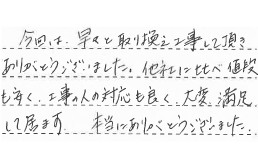 今回は、早々と取り換え工事して頂き
ありがとうございました。他社に比べ値段
も安く、工事の人の対応も良く、大変満足
して居ます。 本当にありがとうございました。